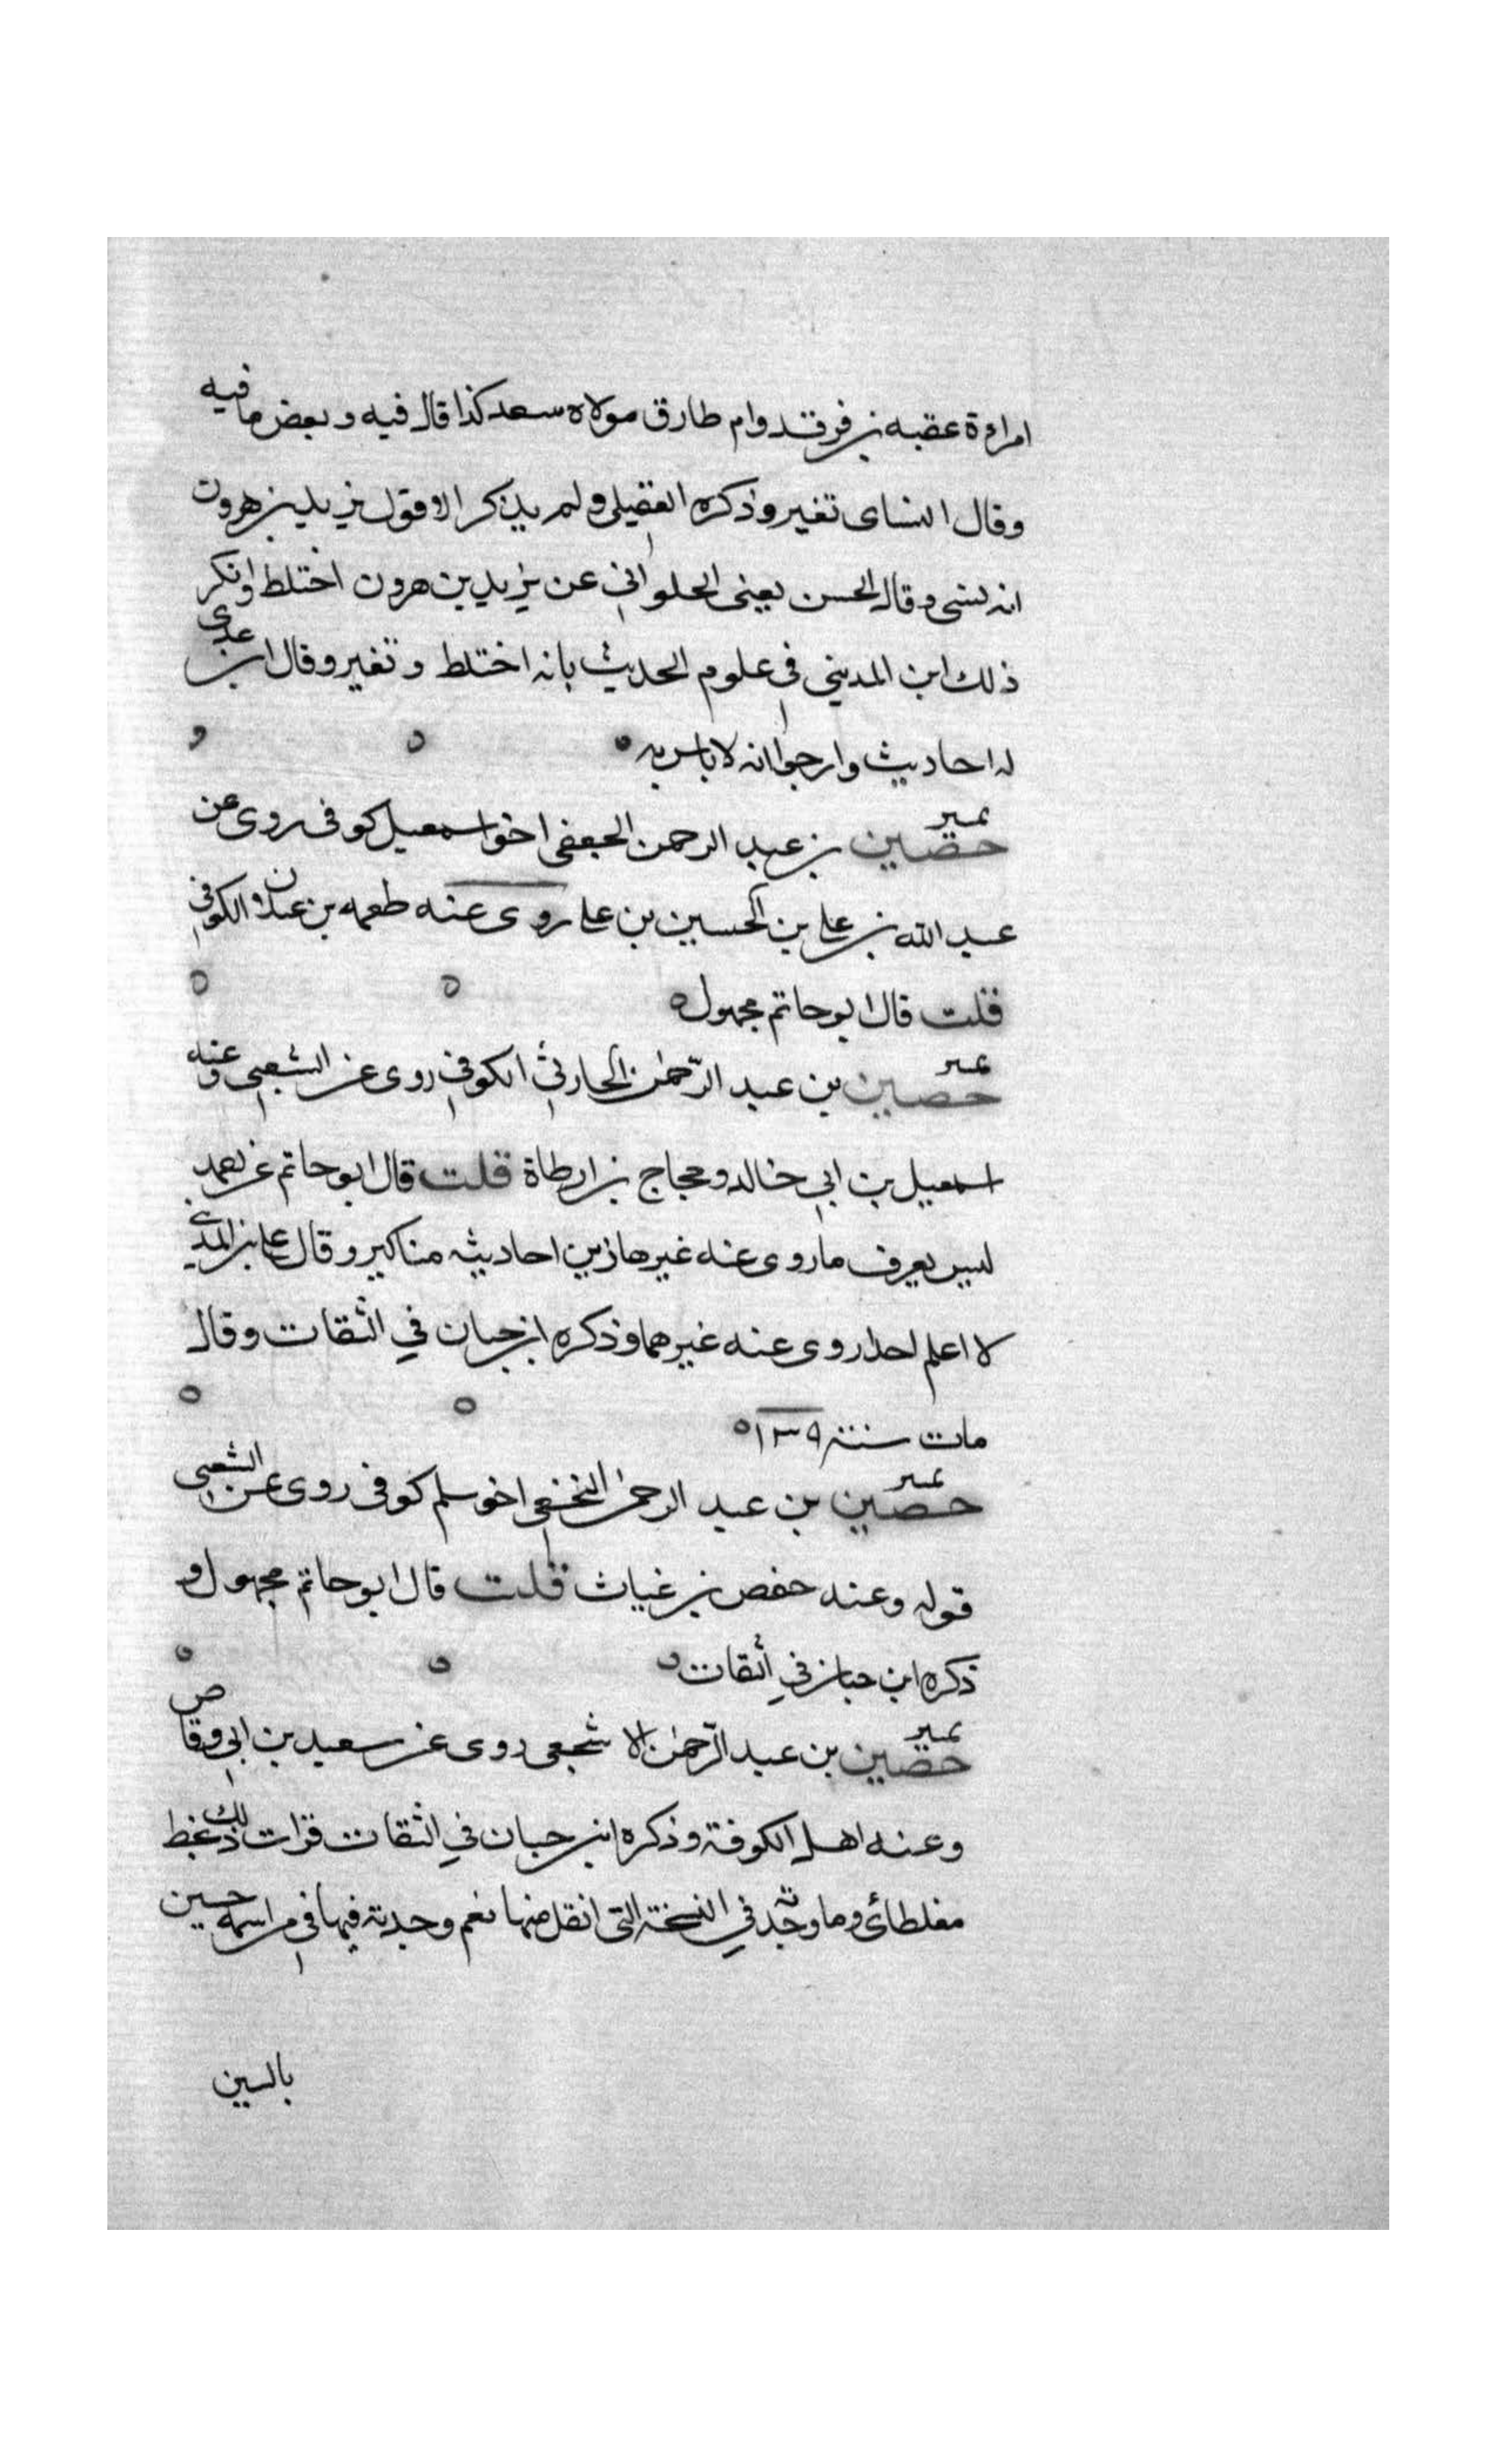 امراة عقبه بن فرقد وام طارق مولاة سعد كذا قال فيه وبعض ما فيه
وقال النساى تغير وذكره العقيلى ولم يذكر الا قول يزيد بن هرون
انه نسى وقال الحسن يعنى الحلواني عن يزيد بن هرون اختلط وانكر
ذلك ابن المديني في علوم الحديث بانه اختلط وتغير وقال ابن عدى
له احاديث وارجوا انه لا باس به
تمير
حصين بن عبد الرحمن الجعفي اخو اسمعيل كوفى روى عن
عبد الله بن على بن الحسين بن على روى عنه طعمه بن غيلان الكوفي
قلت قال ابو حاتم مجهول
تمير
حصين بن عبد الرحمن الحارثي الكوفي روى عن الشعبي وعنه
اسمعيل بن ابي خالد وحجاج بن ارطاة قلت قال ابو حاتم عن احمد
ليس يعرف ما روى عنه غير هاذين احاديثه مناكير وقال على بن المديني
لا اعلم احدا روى عنه غيرهما وذكره ابن حبان في الثقات وقال
مات سنة ١٣٩
تمير
حصين بن عبد الرحمن النخعي اخو سلم كوفى روى عن الشعبي
قوله وعنه حفص بن غياث قلت قال ابو حاتم مجهول و
ذكره ابن حبان في الثقات
تمير
حصين بن عبد الرحمن الاشجعي روى عن سعيد بن ابي وقاص
وعنه اهل الكوفة وذكره ابن حبان في الثقات قرات ذلك بخط
مغلطائ وما وجدته في النسخة التى انقل منها نعم وجدته فيها في من اسمه حسين
بالسين